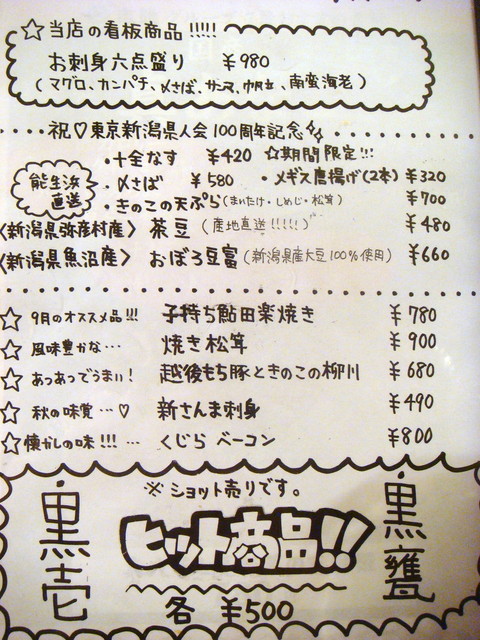 ☆当店の看板商品!!!!!
お刺身六点盛り ¥980
(マグロ、カンパチ、〆さば、サーマ、帆立、南蛮海老)
祝♡東京新潟県人会100周年記念
・十全なす ¥420 ☆期間限定!!!
能生浜直送
・〆さば ¥580 ・メギス唐揚げ(2本) ¥320
・きのこの天ぷら(まいたけ・しめじ・松茸) ¥700
〈新潟県弥彦村産〉 茶豆 (産地直送!!!!!) ¥480
〈新潟県魚沼産〉 おぼろ豆富 (新潟県産大豆100%使用) ¥660
☆ 9月のオススメ品!!! 子持ち鮎田楽焼き ¥780
☆ 風味豊かな… 焼き松茸 ¥900
☆ あっあっでうまい! 越後もち豚ときのこの柳川 ¥680
☆ 秋の味覚…♡ 新さんま刺身 ¥490
☆ 懐かしの味!!!… くじらベーコン ¥800
※ショット売りです。
黒壱
ヒット商品!!
黒甕
各 ¥500